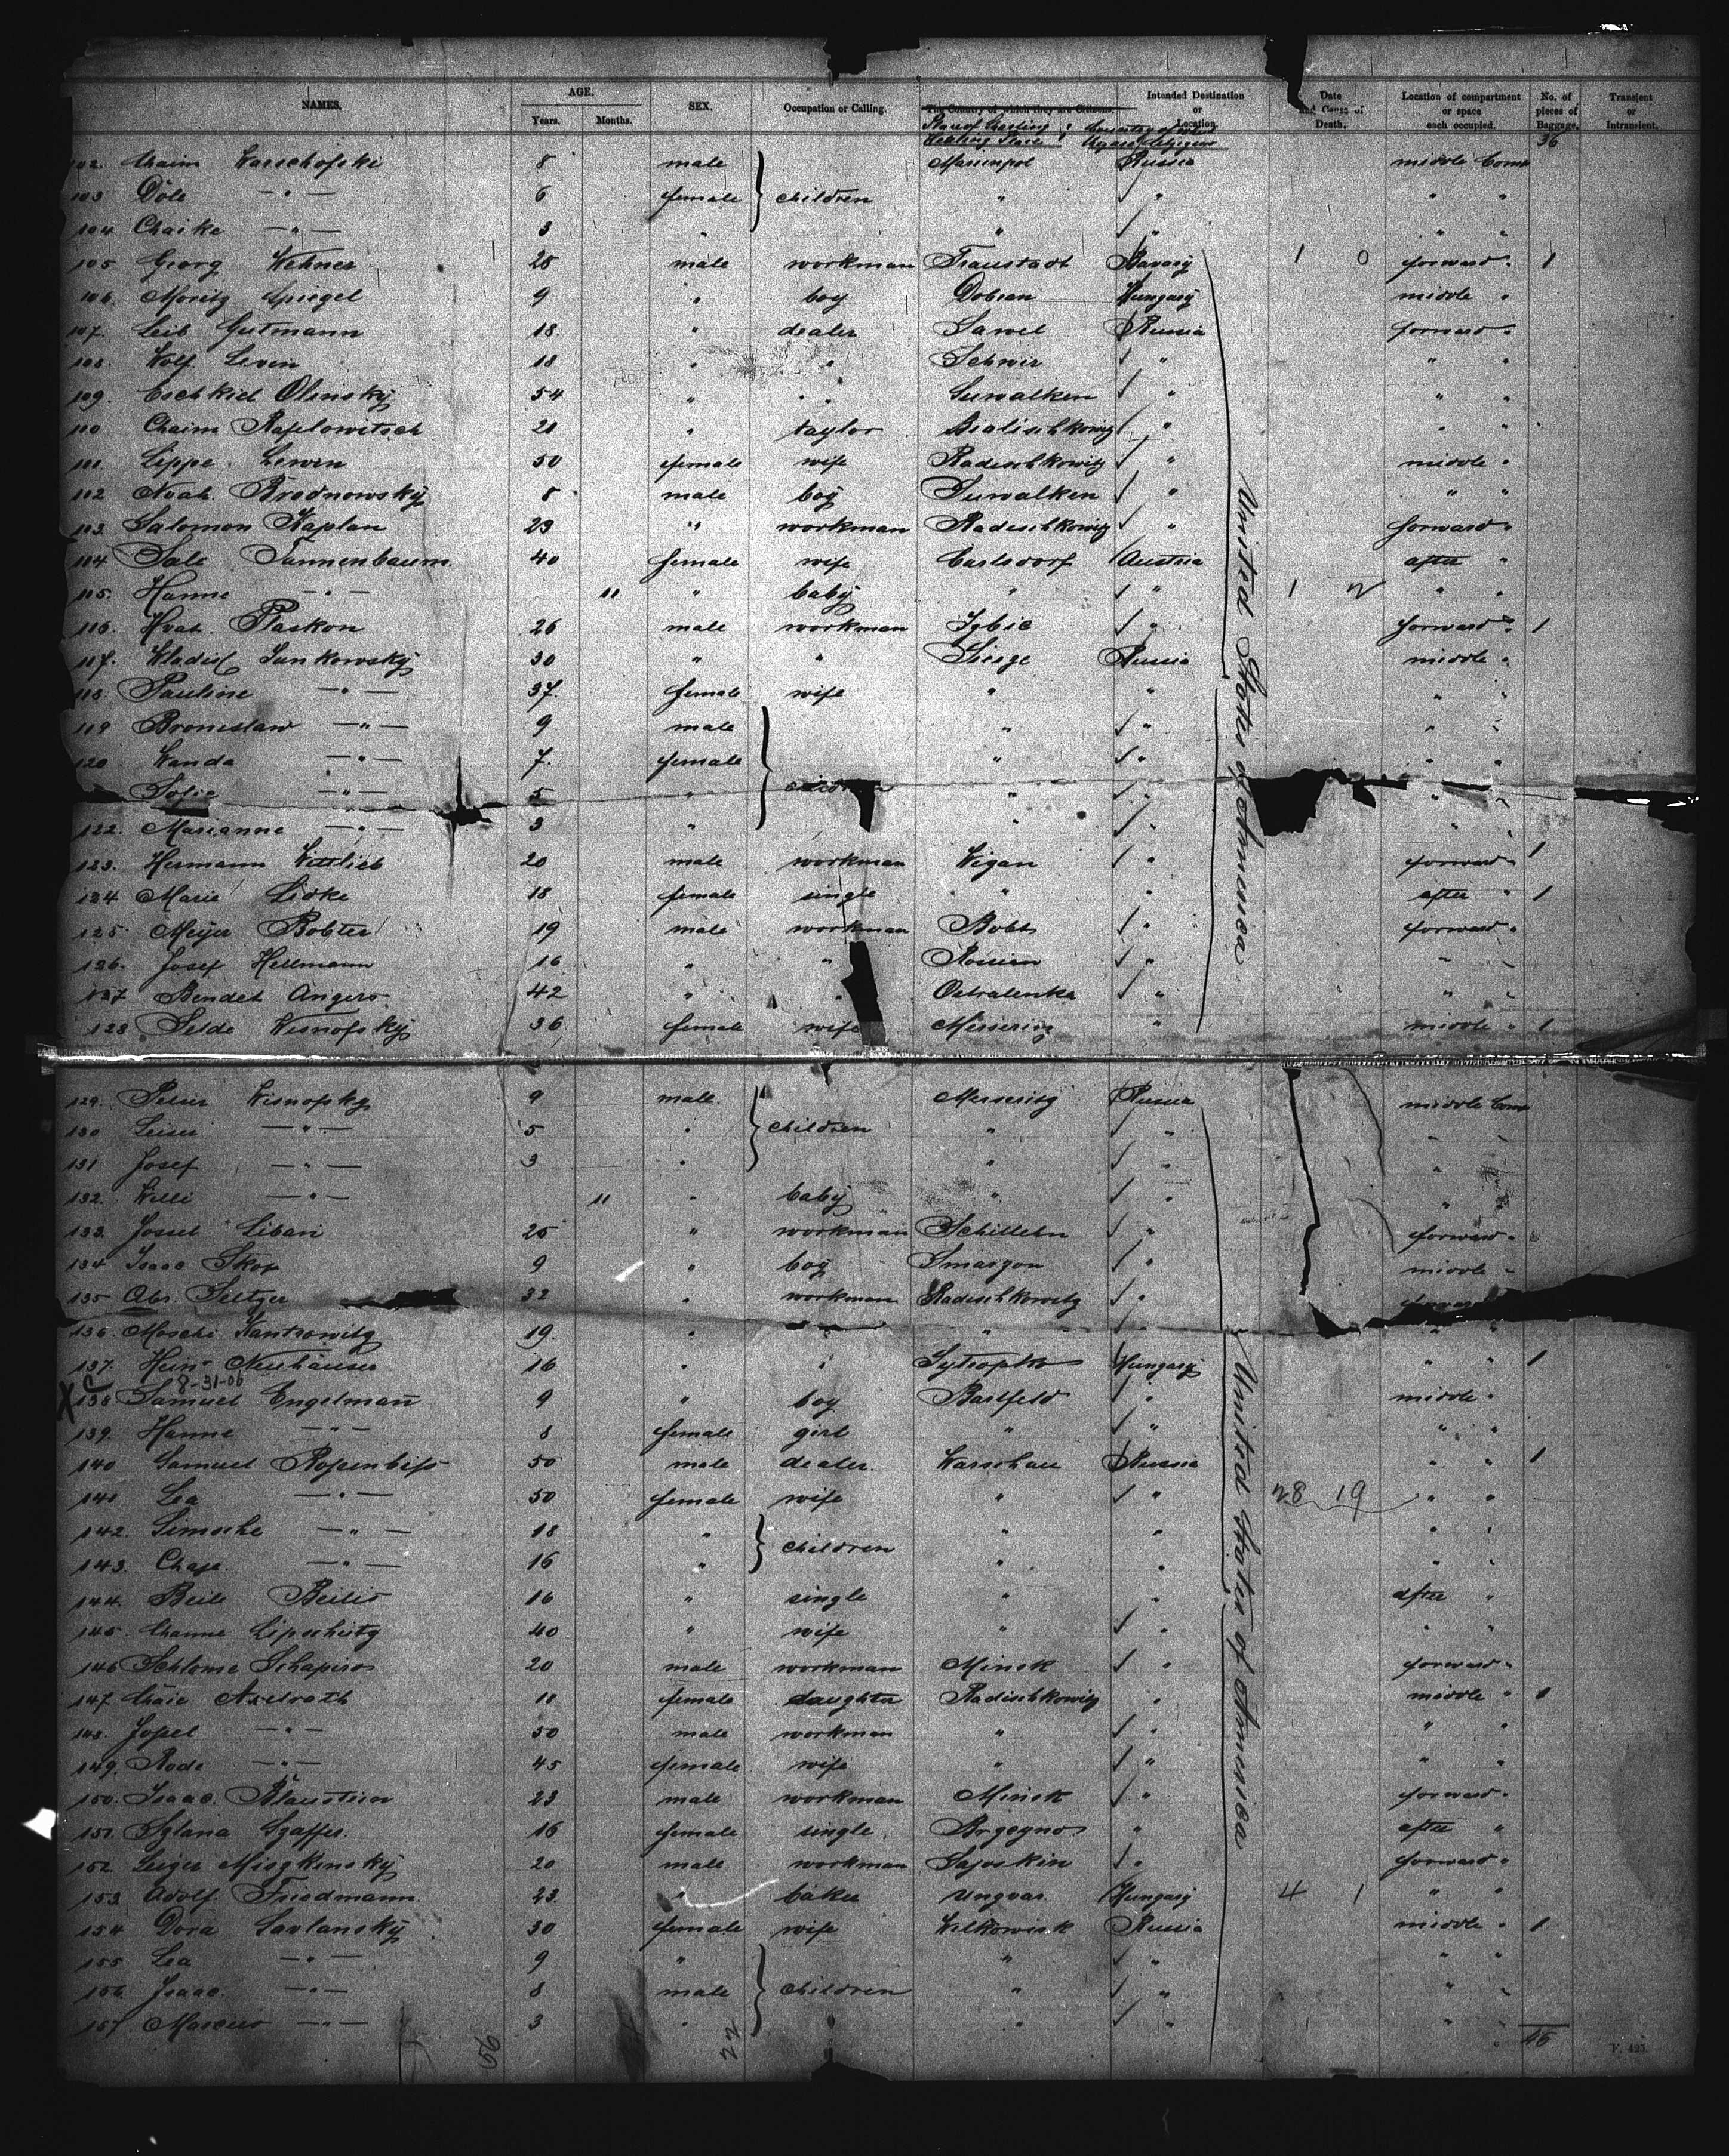 NAMES. AGE. Years. Months. SEX. Occupation or Calling. The Country of which they are Citizens. Intended Destination or Location. Date and Cause of Death. Location of compartment or space each occupied. No. of pieces of Baggage. Transient or Intransient.
36
102. Chaim Warschofski 8 male Marienpol Russia middle Comp
103 Döle — " — 6 female children " " " "
104 Chaike — " — 3 " " " " "
105 Georg Wehner 28 male workman Fraustadt Bavary 1 0 forward " 1
106. Moritz Spiegel 9 " boy Dobran Hungary middle "
107. Leib Gutmann 18. " dealer Sawel Russia forward "
108. Wolf Levin 18 " " Schwir " " "
109. Eschkiel Olinsky 54 " " Suwalken " " "
110 Chaim Kaplowitsch 21 " taylor Bialischkowitz " " "
111 Lippe Lewin 50 female wife Radischkowitz " middle "
112 Noah. Brodnowsky 8 male boy Suwalken " " "
113. Salomon Kaplan 23 " workman Radischkowitz " forward "
114 Sale Tannenbaum 40 female wife Carlsdorf Austria after "
115. Hanne — " — 11 " baby " " 1 " "
116. Hvat. Plaskon 26 male workman " forward " 1
117. Wladisl Jankowsky 30 " " Russia middle "
118. Pauline — " — 37. female wife " " " "
119 Bronislaw — " — 9 male " " " "
120 Wanda — " — 7. female " " " "
Sofie — " — 5 " children " " " "
122. Marianne — " — 3 " " " " "
123. Hermann Wittlieb 20 male workman Wigan " forward " 1
124 Marie Lidke 18 female single " " after " 1
125 Meyer Bobter 19 male workman Bobt " forward "
126. Josef Hellmann 16 " " Rossien " " "
127 Bendet Angers 42 " " Ostralenka " " "
128 Selde Wisnofsky 36 female wife Meseritz " middle " 1
United States of America
129. Wisnofsky 9 male Meseritz Russia middle Comp
130 Leiser — " — 5 " children " " " "
131 Josef — " — 3 " " " "
132. Welli — " — 11 " baby " " "
133. Jossel Liban 25 " workman Schilleln " forward "
134 Isaac Skop 9 " boy Smargon " middle "
135 Abr. Seltzer 32 " workman Radischkowitz " forward
136. Mosche Kantrowitz 19. " " " " "
137. Hein- Neuhäuser 16 " " Hungary " " 1
8-31-06
X C 138 Samuel Engelmann 9 " boy Bartfeld " middle "
139. Hanne — " — 8 female girl " " " "
140 Samuel Rosenbess 50 male dealer Warschau Russia " " 1
141 Lea — " — 50 female wife " " 28 19 " "
142. Simsche — " — 18 " children " " " "
143. Chaje. — " — 16 " " " " "
144. Beile Beilis 16 " single " " after "
145. Channe Lipschitz 40 " wife " " " "
146 Schlome Schapiro 20 male workman Minsk " forward "
147. Chaie Axelroth 18 female daughter Radischkowitz " middle " 1
148. Jossel — " — 50 male workman " " " "
149. Rode — " — 45 female wife " " " "
150. Isaac. Blaustein 23 male workman Minsk " forward "
151. Szlana Szaffer. 16 female single " after "
152 Leiger Miszkinsky 20 male workman " forward "
153. Adolf. Friedmann. 23. " baker Ungvar. Hungary 4 1 " "
154 Dora Saulansky 30 female wife Wilkowisk Russia middle " 1
155 Lea — " — 9 " " " " "
156 Isaac. — " — 8 male children " " " "
157. Marcus — " — 3 " " " " "
United States of America
56 22 46
F. 425.